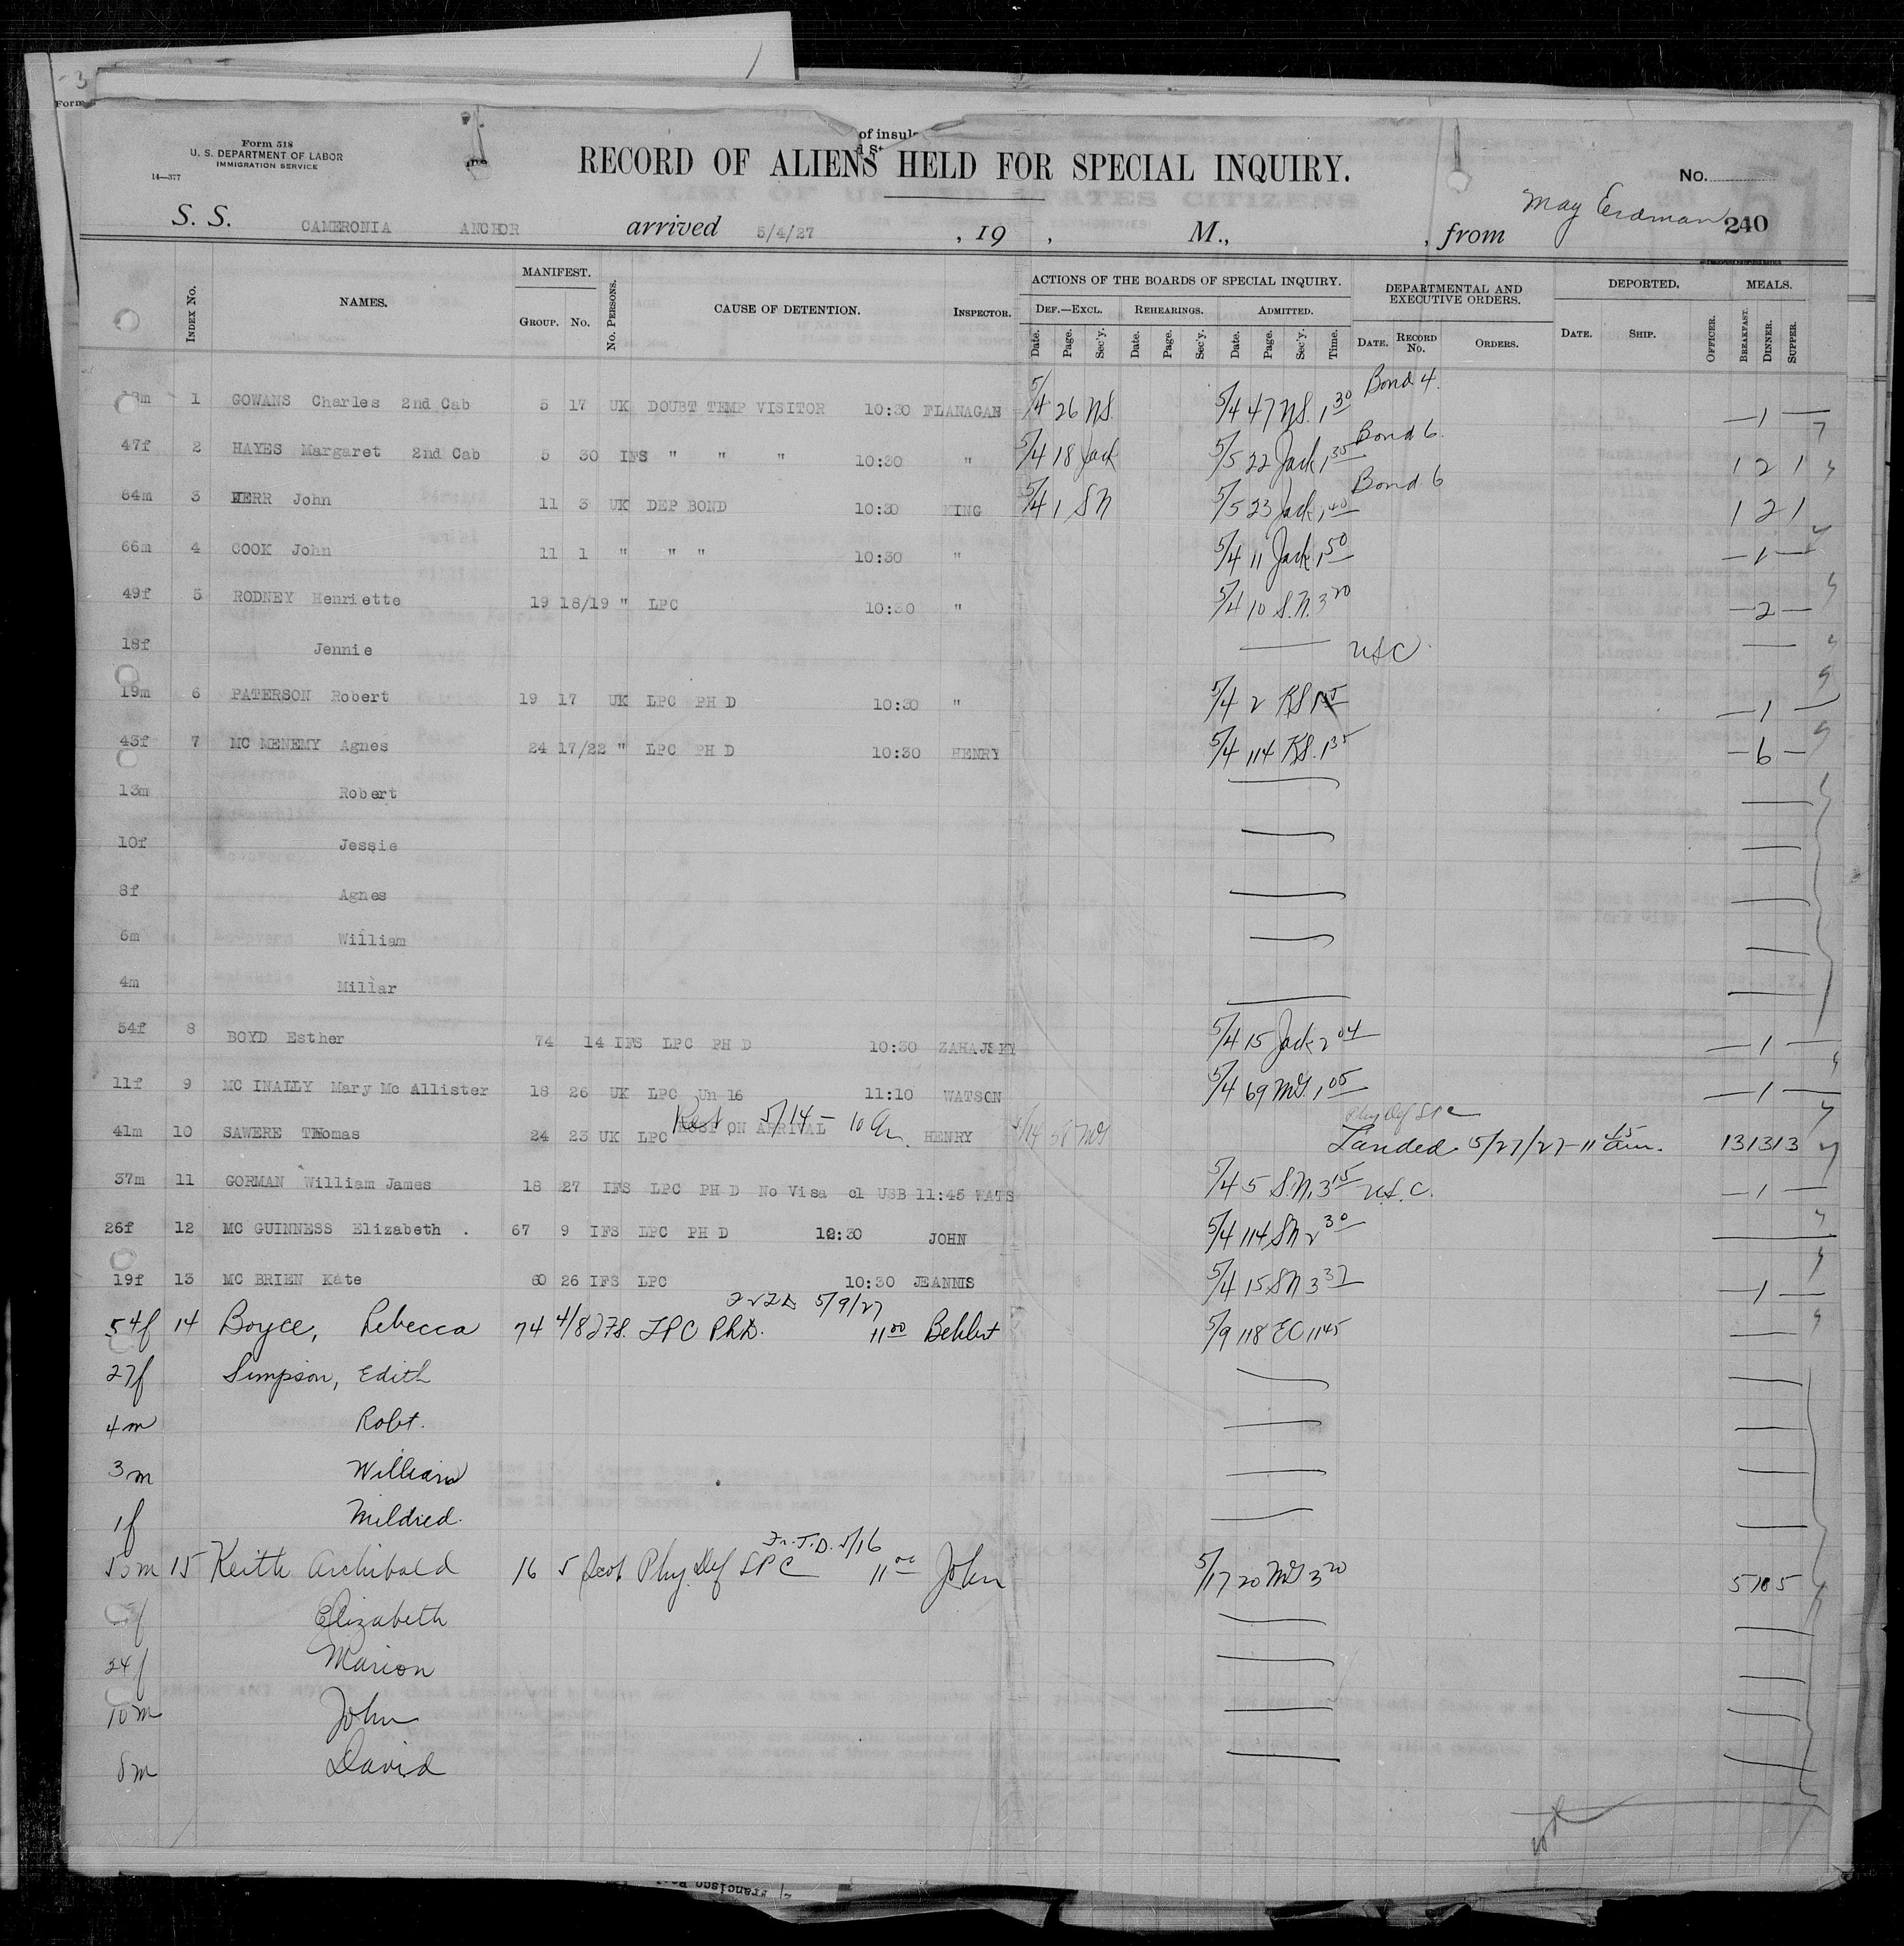 3
Form
Form 518
U. S. DEPARTMENT OF LABOR
IMMIGRATION SERVICE
14—377
of insula
d St
RECORD OF ALIENS HELD FOR SPECIAL INQUIRY.
No.
May Erdman
240
S. S. CAMERONIA ANCHOR arrived 5/4/27 , 19 , M., , from
Index No. NAMES. MANIFEST. Group. No. No. Persons. CAUSE OF DETENTION. Inspector. ACTIONS OF THE BOARDS OF SPECIAL INQUIRY. Def.—Excl. Date. Page. Sec'y. Rehearings. Date. Page. Sec'y. Admitted. Date. Page. Sec'y. Time. DEPARTMENTAL AND EXECUTIVE ORDERS. Date. Record No. Orders. DEPORTED. Date. Ship. Officer. MEALS. Breakfast. Dinner. Supper.
8m 1 GOWANS Charles 2nd Cab 5 17 UK DOUBT TEMP VISITOR 10:30 FLANAGAN 5/4 26 NS. 5/4 47 NS. 1 30 Bond 4. — 1 —
47f 2 HAYES Margaret 2nd Cab 5 30 IFS " " " 10:30 " 5/4 18 Jack 5/5 22 Jack 1 35 Bond 6. 1 2 1
64m 3 HERR John 11 3 UK DEP BOND 10:30 KING 5/4 1 SN 5/5 23 Jack 1 40 Bond 6 1 2 1
66m 4 COOK John 11 1 " " " 10:30 " 5/4 11 Jack 1 50 — 1 —
49f 5 RODNEY Henriette 19 18/19 " LPC 10:30 " 5/4 10 S.N. 3 20 — 2 —
18f Jennie — USC. —
19m 6 PATERSON Robert 19 17 UK LPC PH D 10:30 " 5/4 2 RS — 1 —
43f 7 MC MENEMY Agnes 24 17/22 " LPC PH D 10:30 HENRY 5/4 114 RS. 1 35 — 6 —
13m Robert — —
10f Jessie — —
8f Agnes — —
6m William — —
4m Millar — —
54f 8 BOYD Esther 74 14 IFS LPC PH D 10:30 ZAHAJSKY 5/4 15 Jack 2 04 — 1 —
11f 9 MC INALLY Mary Mc Allister 18 26 UK LPC Un 16 11:10 WATSON 5/4 69 MG. 1 05 — 1 —
5/14 — 10 Phy Def LPC
41m 10 SAWERE Thomas 24 23 UK LPC HOSP ON ARRIVAL HENRY Landed 5/27/27 - 11 15 am. 13 13 13
37m 11 GORMAN William James 18 27 IFS LPC PH D No Visa cl USB 11:45 WATS 5/4 5 S.N. 3 15 U.S.C. — 1 —
26f 12 MC GUINNESS Elizabeth . 67 9 IFS LPC PH D 12:30 JOHN 5/4 114 SN 2 30 —
19f 13 MC BRIEN Kate 60 26 IFS LPC 10:30 JEANNIS 5/4 15 SN 3 37 — 1 —
5/9/27
54f 14 Boyce, Rebecca 74 4/8 IFS. LPC PhD. 11 00 5/9 118 EC 11 45 —
27f Simpson, Edith — —
4m Robt. — —
3m William — —
1f Mildred. — —
5/16
15 Keith Archibald 16 5 Scot Phy. Def LPC 11 00 John 5/17 20 MG 3 20 5 10 5
f Elizabeth — —
24f Marion — —
10m John — —
8m David — —
Francisco